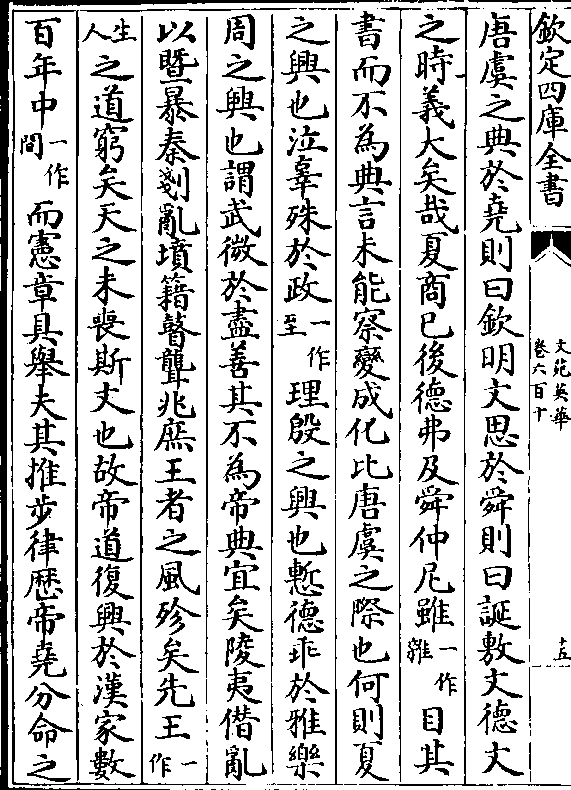 欽定四庫全書
文苑英華
卷六百十
十五
唐虞之典於堯則曰欽明文思於舜則曰誕敷文德文
之時義大矣哉夏商已後德弗及舜仲尼雖一作雖目其
書而不為典言未能察變成化比唐虞之際也何則夏
之興也泣辜殊於政一作至理殷之興也慙德乖於雅樂
周之興也謂武微於盡善其不為帝典宜矣陵夷僭亂
以曁暴秦剗亂墳籍瞽聾兆庶王者之風殄矣先王一作
生人之道窮矣天之未喪斯文也故帝道復興於漢家數
百年中一作間而憲章具舉夫其推步律歴帝堯分命之